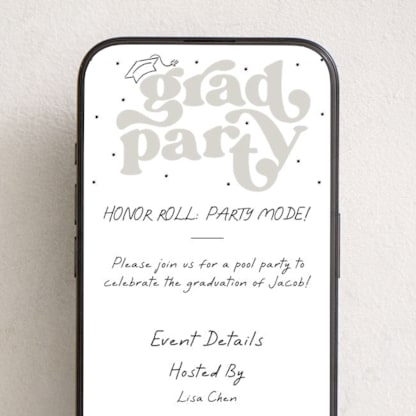 grad
party
HONOR ROLL: PARTY MODE!
Please join us for a pool party to
celebrate the graduation of Jacob!
Event Details
Hosted By
Lisa Chen